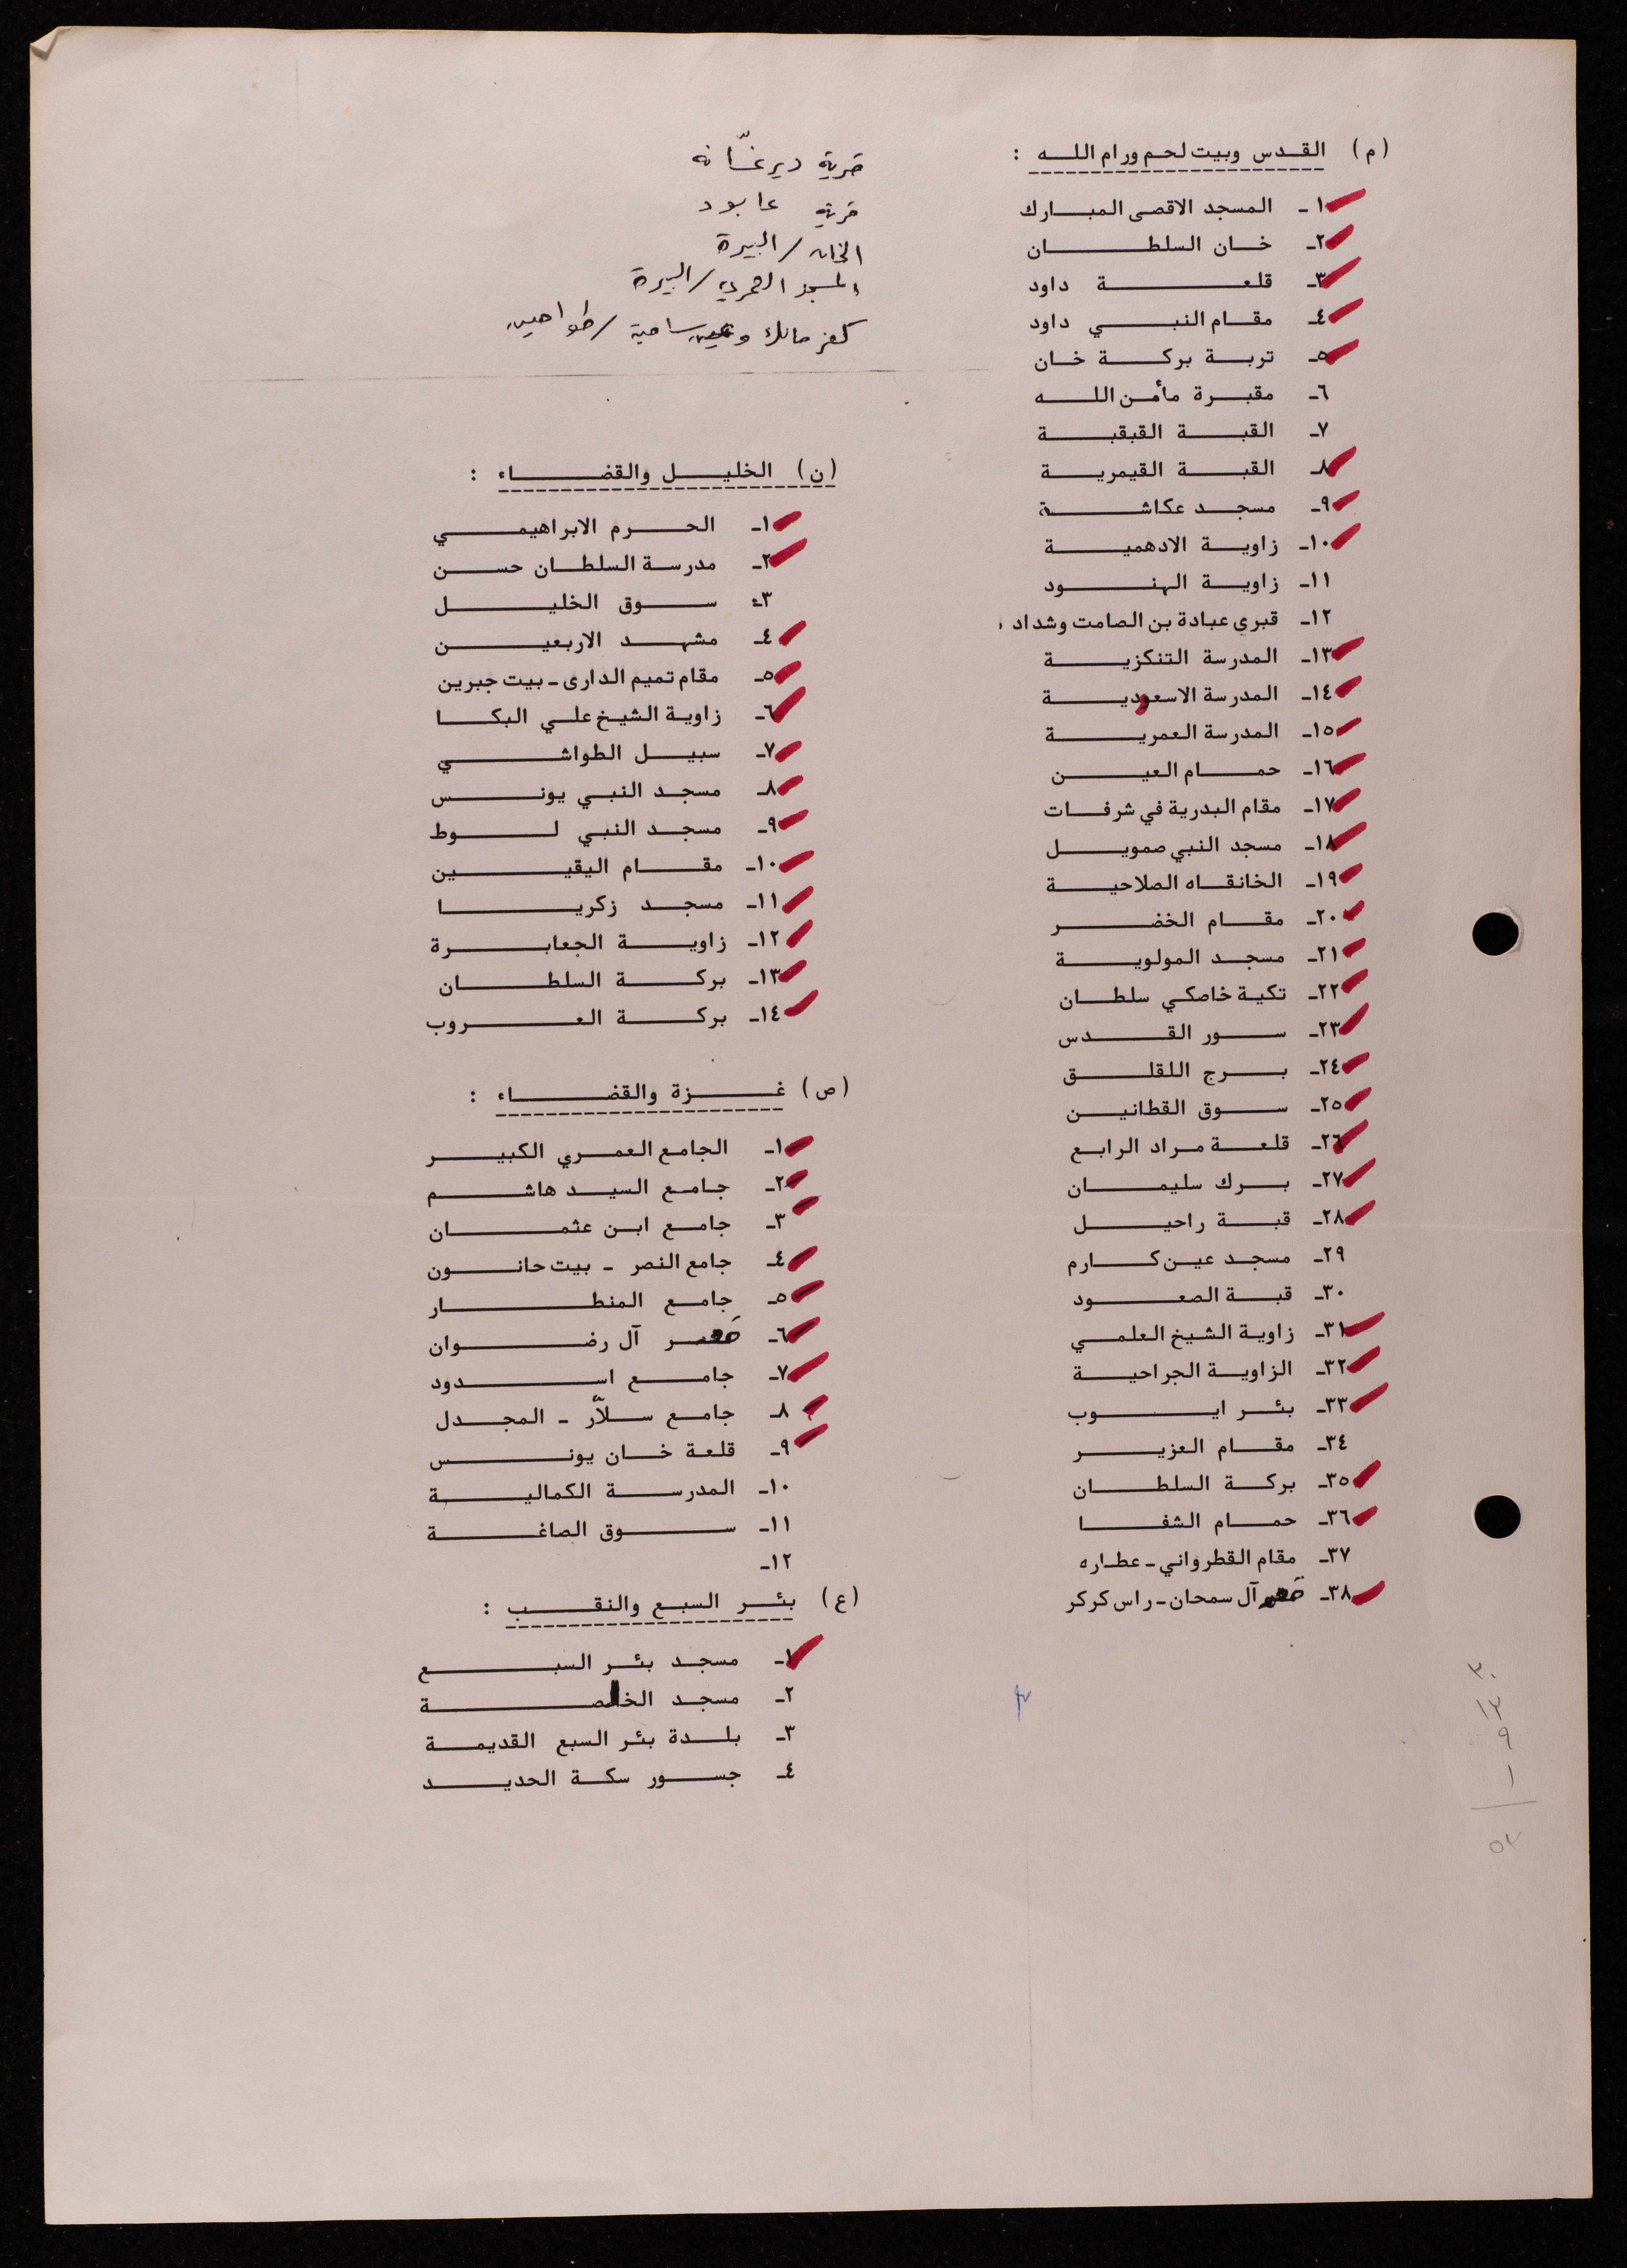 (م) القدس وبيت لحم ورام الله :
١- المسجد الاقصى المبارك
٢- خان السلطان
٣- قلعة داود
٤- مقام النبي داود
٥- تربة بركة خان
٦- مقبرة مأمن الله
٧- القبة القبقبة
٨- القبة القيمرية
٩- مسجد عكاشة
١٠- زاوية الادهمية
١١- زاوية الهنود
١٢- قبري عبادة بن الصامت وشداد
١٣- المدرسة التنكزية
١٤- المدرسة الاسعودية
١٥- المدرسة العمرية
١٦- حمام العين
١٧- مقام البدرية في شرفات
١٨- مسجد النبي صمويل
١٩- الخانقاه الصلاحية
٢٠- مقام الخضر
٢١- مسجد المولوية
٢٢- تكية خاصكي سلطان
٢٣- سور القدس
٢٤- برج اللقلق
٢٥- سوق القطانين
٢٦- قلعة مراد الرابع
٢٧- برك سليمان
٢٨- قبة راحيل
٢٩- مسجد عين كارم
٣٠- قبة الصعود
٣١- زاوية الشيخ العلمي
٣٢- الزاوية الجراحية
٣٣- بئر ايوب
٣٤- مقام العزير
٣٥- بركة السلطان
٣٦- حمام الشفا
٣٧- مقام القطرواني - عطاره
٣٨- قصر آل سمحان - راس كركر
قرية دير غسّانه
قرية عابود
الخان / البيرة
المسجد العمري / البيرة
كفر مالك وعين سامية / طواحين
(ن) الخليل والقضاء :
١- الحرم الابراهيمي
٢- مدرسة السلطان حسن
٣- سوق الخليل
٤- مشهد الاربعين
٥- مقام تميم الدارى - بيت جبرين
٦- زاوية الشيخ علي البكا
٧- سبيل الطواشي
٨- مسجد النبي يونس
٩- مسجد النبي لوط
١٠- مقام اليقين
١١- مسجد زكريا
١٢- زاوية الجعابرة
١٣- بركة السلطان
١٤- بركة العروب
(ص) غزة والقضاء :
١- الجامع العمري الكبير
٢- جامع السيد هاشم
٣- جامع ابن عثمان
٤- جامع النصر - بيت حانون
٥- جامع المنطار
٦- قصر آل رضوان
٧- جامع اسدود
٨- جامع سلاّر - المجدل
٩- قلعة خان يونس
١٠- المدرسة الكمالية
١١- سوق الصاغة
١٢-
(ع) بئر السبع والنقب :
١- مسجد بئر السبع
٢- مسجد الخلصة
٣- بلدة بئر السبع القديمة
٤- جسور سكة الحديد
٣٠
١٣
٩
١
٥٣